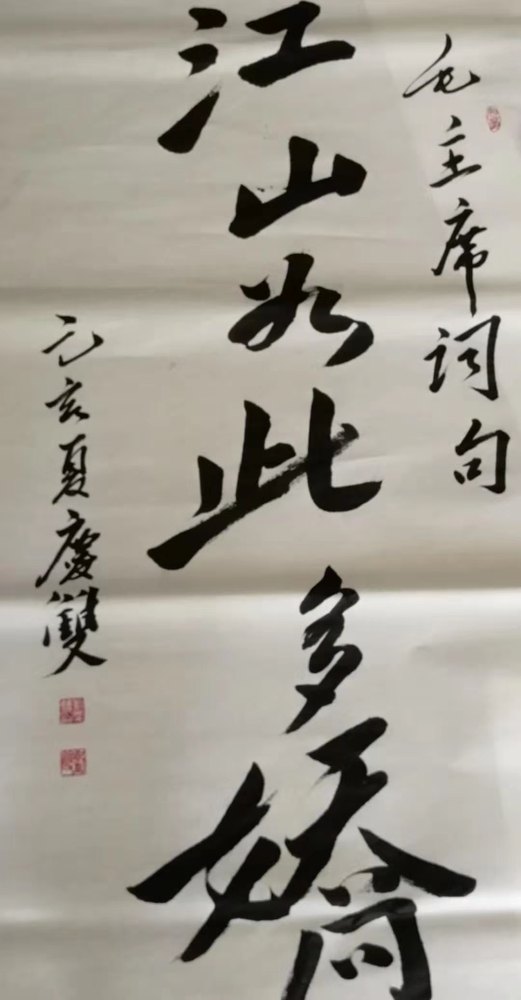 毛主席词句
江山如此多娇
己亥夏慶雙